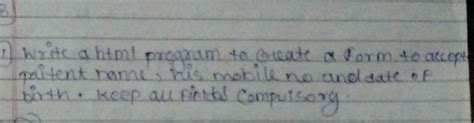 B
1) Write a html program to create a form to accept
paitent name, his mobile no and date of
birth. Keep all fields compulsory.